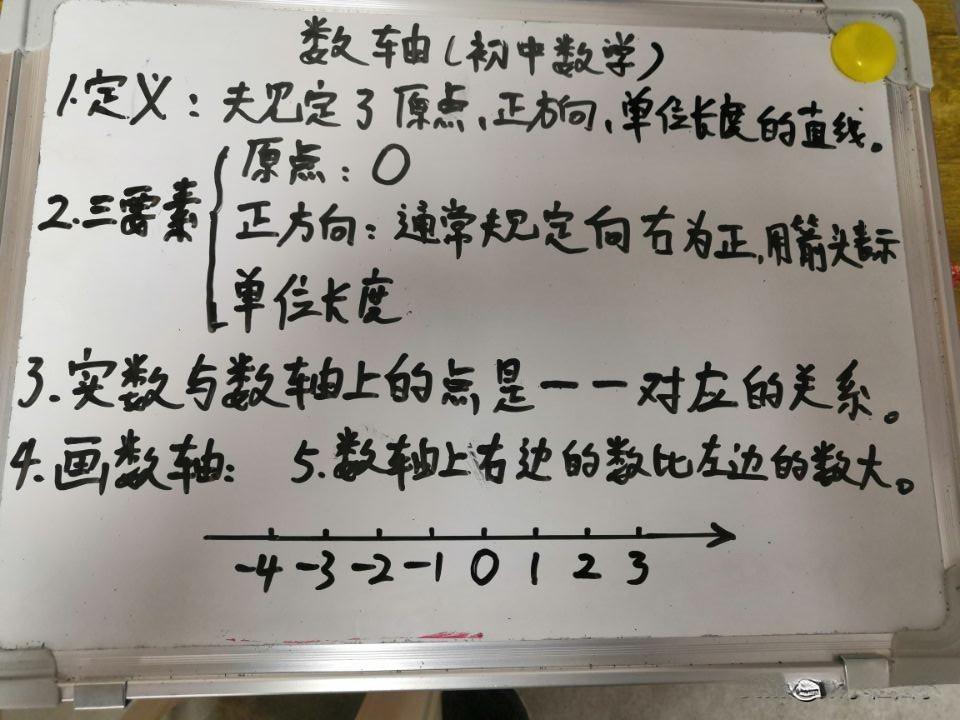 数轴(初中数学)
1.定义：规定了原点、正方向、单位长度的直线。
2.三要素
原点：0
正方向：通常规定向右为正,用箭头表示
单位长度
3.实数与数轴上的点是一一对应的关系。
4.画数轴： 5.数轴上右边的数比左边的数大。
-4 -3 -2 -1 0 1 2 3